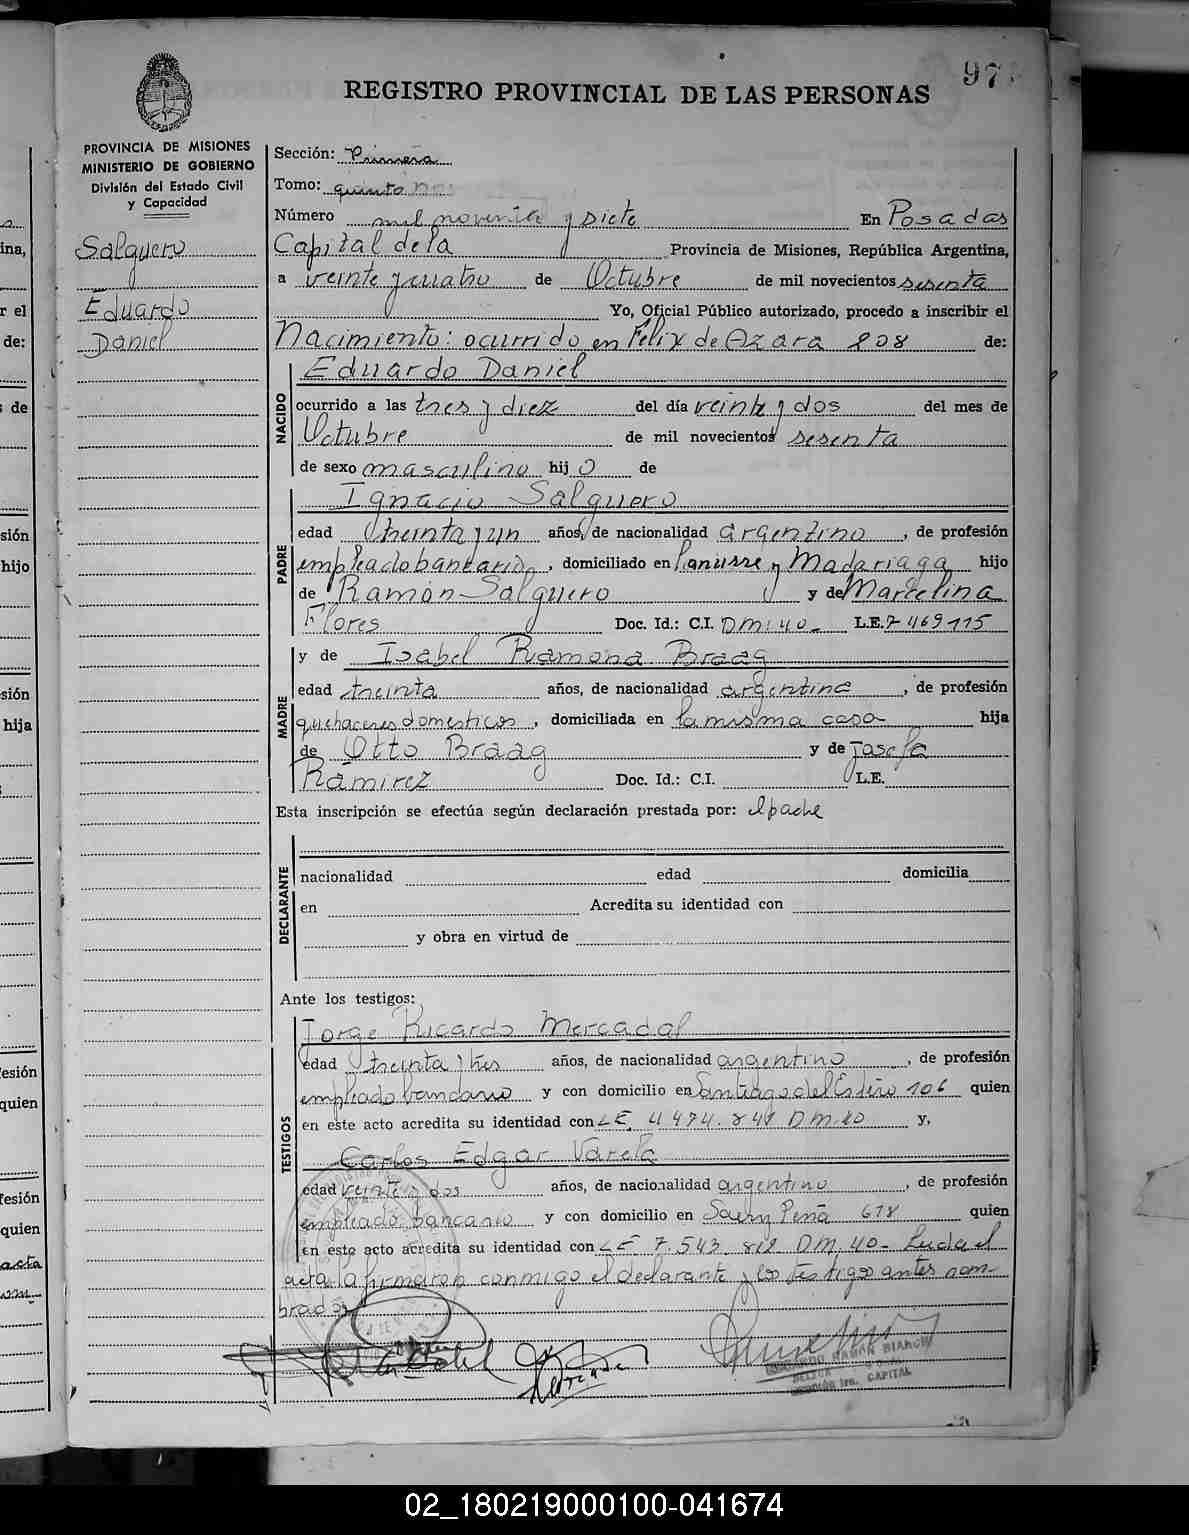 97
REGISTRO PROVINCIAL DE LAS PERSONAS
PROVINCIA DE MISIONES
MINISTERIO DE GOBIERNO
División del Estado Civil
y Capacidad
Salguero
Eduardo
Daniel
Sección: Primera
Tomo: quinto
Número mil noventa y siete En Posadas
Capital de la Provincia de Misiones, República Argentina,
a veinte y cuatro de Octubre de mil novecientos sesenta
Yo, Oficial Público autorizado, procedo a inscribir el
Nacimiento: ocurrido en Félix de Azara 208 de:
Eduardo Daniel
NACIDO
ocurrido a las tres y diez del día veinte y dos del mes de
Octubre de mil novecientos sesenta
de sexo masculino hijo de
Ignacio Salguero
PADRE
edad treinta y un años, de nacionalidad argentino, de profesión
empleado bancario, domiciliado en Lanusse y Madariaga hijo
de Ramón Salguero y de Marcelina
Flores Doc. Id.: C.I. DM: 40- L.E. 7469115
y de Isabel Ramona Braag
MADRE
edad treinta años, de nacionalidad argentina, de profesión
quehaceres domesticos, domiciliada en la misma casa hija
de Otto Braag y de Josefa
Ramirez Doc. Id.: C.I. L.E.
Esta inscripción se efectúa según declaración prestada por: el padre
DECLARANTE
nacionalidad edad domicilia
en Acredita su identidad con
y obra en virtud de
Ante los testigos:
Jorge Ricardo Mercadal
TESTIGOS
edad treinta y tres años, de nacionalidad argentino, de profesión
empleado bancario y con domicilio en Santiago del Estero 106 quien
en este acto acredita su identidad con L.E. DM. y,
Carlos Edgar Varela
edad veinte y dos años, de nacionalidad argentino, de profesión
empleado bancario y con domicilio en Saenz Peña 678 quien
en este acto acredita su identidad con LE 7.543. DM. 40- Leida el
acta la firmaron conmigo el declarante y los testigos antes nom-
brados
RAMON BIANCHI
SECCIÓN 1ra. CAPITAL
02_180219000100-041674